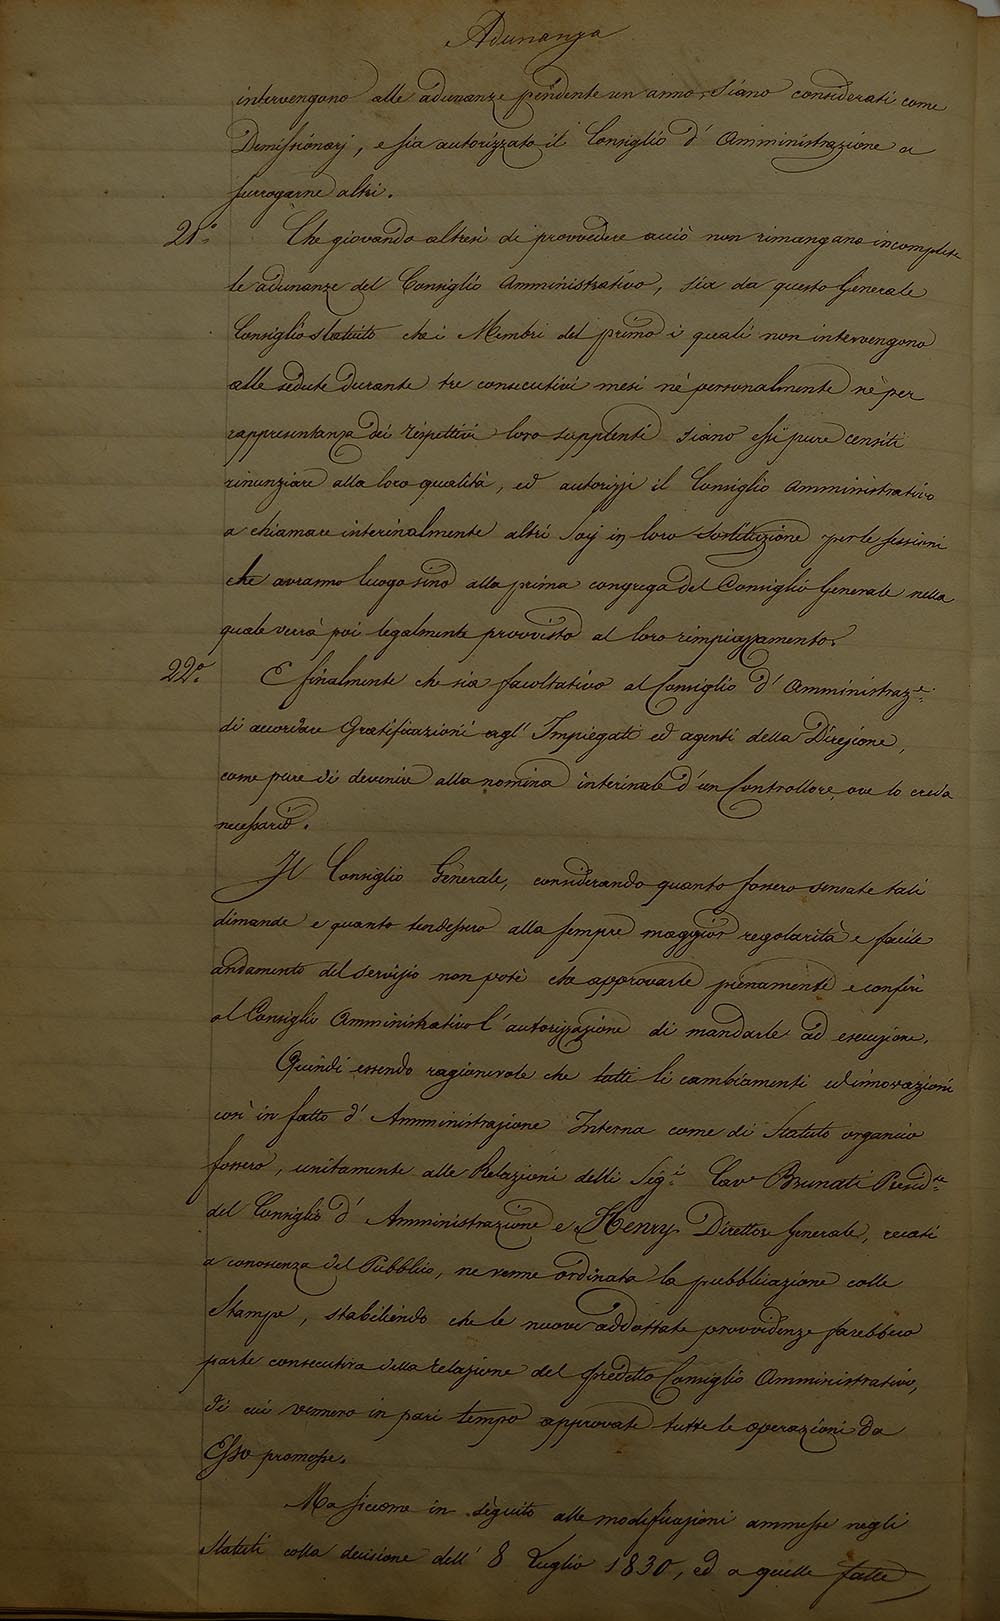 Adunanza
intervengono alle adunanze pendente un anno, siano considerati come
Demissionarj, e sia autorizzato il Consiglio d' Amministrazione a
surrogarne altri.
21.° Che giovando altresì di provvedere acciò non rimangano incomplete
le adunanze del Consiglio Amministrativo, sia da questo Generale
Consiglio statuito che i Membri del primo i quali non intervengono
alle sedute durante tre consecutivi mesi nè personalmente nè per
rappresentanza dei rispettivi loro supplenti siano essi pure censiti
rinunziare alla loro qualità, ed autorizzi il Consiglio Amministrativo
a chiamare interinalmente altri Socj in loro sostituzione per le sessioni
che avranno luogo sino alla prima congrega del Consiglio Generale nella
quale verrà poi legalmente provvisto al loro rimpiazzamento.
22.° E finalmente che sia facoltativo al Consiglio d' Amministraz.e
di accordare Gratificazioni agl' Impiegati ed agenti della Direzione,
come pure di devenire alla nomina interinale d'un Controllore, ove lo creda
necessario.
Il Consiglio Generale, considerando quanto fossero sensate tali
dimande e quanto tendessero alla sempre maggior regolarità e facile
andamento del servizio non potè che approvarle pienamente e conferì
al Consiglio Amministrativo l'autorizzazione di mandarle ad esecuzione.
Quindi essendo ragionevole che tutti li cambiamenti ed innovazioni
così in fatto d' Amministrazione Interna come di Statuto organico
fossero, unitamente alle Relazioni delli Sig.i Cav.e Brunati Presid.te
del Consiglio d' Amministrazione e Henry Direttore Generale, recati
a conoscenza del Pubblico, ne venne ordinata la pubblicazione colle
Stampe, stabilendo che le nuove addottate provvidenze farebbero
parte consecutiva della relazione del predetto Consiglio Amministrativo,
di cui vennero in pari tempo approvate tutte le operazioni da
Esso promosse.
Ma siccome in seguito alle modificazioni ammesse negli
Statuti colla decisione dell' 8 Luglio 1830, ed a quelle fatte